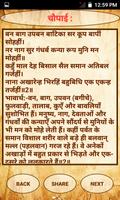 12:59 PM
चौपाई :
बन बाग उपबन बाटिका सर कूप बापीं
सोहहीं।
नर नाग सुर गंधर्ब कन्या रूप मुनि मन
मोहहीं॥
कहुँ माल देह बिसाल सैल समान अतिबल
गर्जहीं।
नाना अखारेन्ह भिरहिं बहुबिधि एक एकन्ह
तर्जहीं॥
वन, बाग, उपवन (बगीचे), फुलवाड़ी,
तालाब, कुएँ और बावलियाँ
सुशोभित हैं। मनुष्य, नाग, देवताओं और
गंधर्वों की कन्याएँ अपने सौंदर्य से मुनियों
के भी मन को मोहे लेती हैं। कहीं पर्वत के
समान विशाल शरीर वाले बड़े ही बलवान्
मल्ल (पहलवान) गरज रहे हैं। वे अनेकों
अखाड़ों में बहुत प्रकार से भिड़ते और एक-
दूसरे को ललकारते हैं।
BACK
SHARE
NEXT